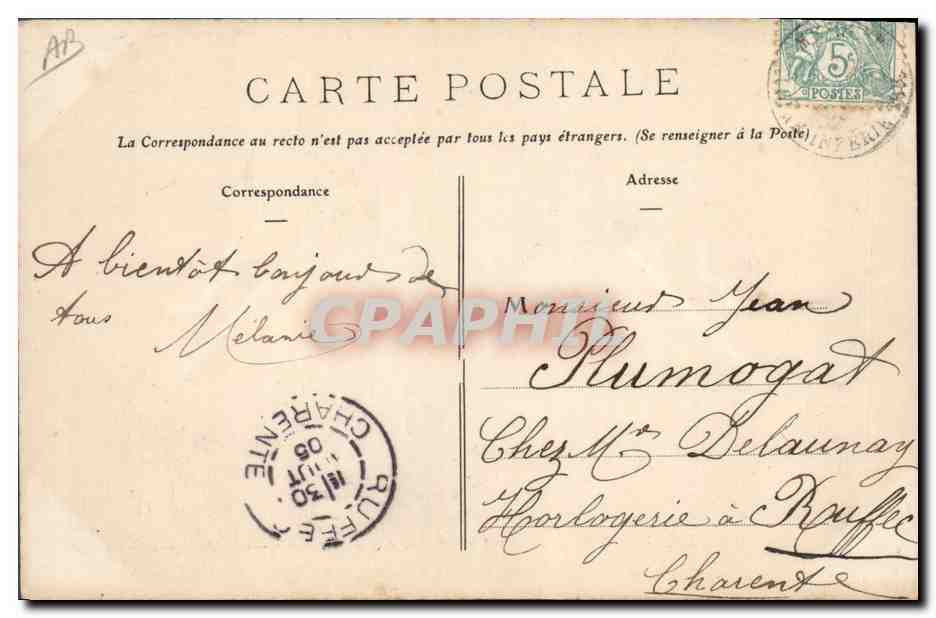 AB
5c
POSTES
CARTE POSTALE
La Correspondance au recto n'est pas acceptée par tous les pays étrangers. (Se renseigner à la Poste)
Correspondance
A bientôt bonjour de
tous Mélanie
CPAPHIL
RUFFEC
CHARENTE
1E
30
AOUT
05
Adresse
Monsieur Jean
Plumogat
Chez Mr Delaunay
Horlogerie à Ruffec
Charente